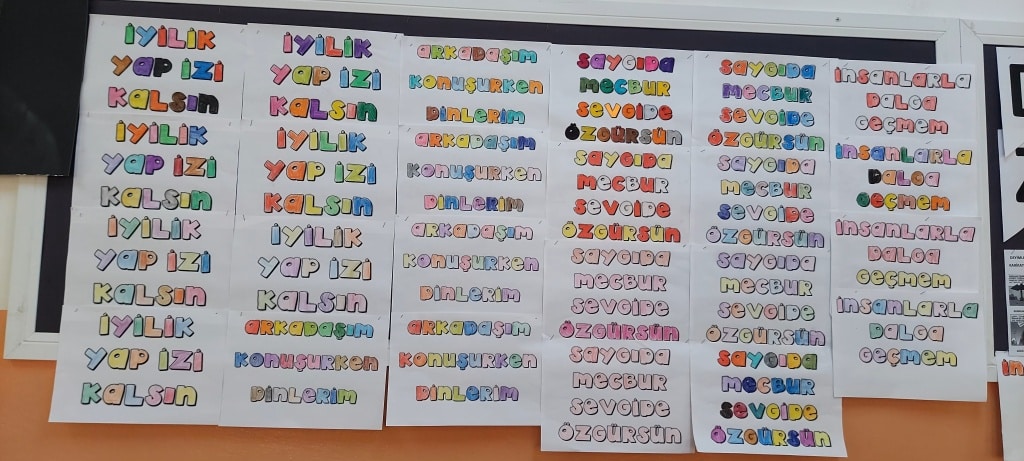 İYİLİK
YAP İZİ
KALSIN
İYİLİK
YAP İZİ
KALSIN
İYİLİK
YAP İZİ
KALSIN
İYİLİK
YAP İZİ
KALSIN
İYİLİK
YAP İZİ
KALSIN
İYİLİK
YAP İZİ
KALSIN
İYİLİK
YAP İZİ
KALSIN
ARKADAŞIM
KONUŞURKEN
DİNLERİM
ARKADAŞIM
KONUŞURKEN
DİNLERİM
ARKADAŞIM
KONUŞURKEN
DİNLERİM
ARKADAŞIM
KONUŞURKEN
DİNLERİM
ARKADAŞIM
KONUŞURKEN
DİNLERİM
SAYGIDA
MECBUR
SEVGİDE
ÖZGÜRSÜN
SAYGIDA
MECBUR
SEVGİDE
ÖZGÜRSÜN
SAYGIDA
MECBUR
SEVGİDE
ÖZGÜRSÜN
SAYGIDA
MECBUR
SEVGİDE
ÖZGÜRSÜN
SAYGIDA
MECBUR
SEVGİDE
ÖZGÜRSÜN
SAYGIDA
MECBUR
SEVGİDE
ÖZGÜRSÜN
SAYGIDA
MECBUR
SEVGİDE
ÖZGÜRSÜN
SAYGIDA
MECBUR
SEVGİDE
ÖZGÜRSÜN
İNSANLARLA
DALGA
GEÇMEM
İNSANLARLA
DALGA
GEÇMEM
İNSANLARLA
DALGA
GEÇMEM
İNSANLARLA
DALGA
GEÇMEM